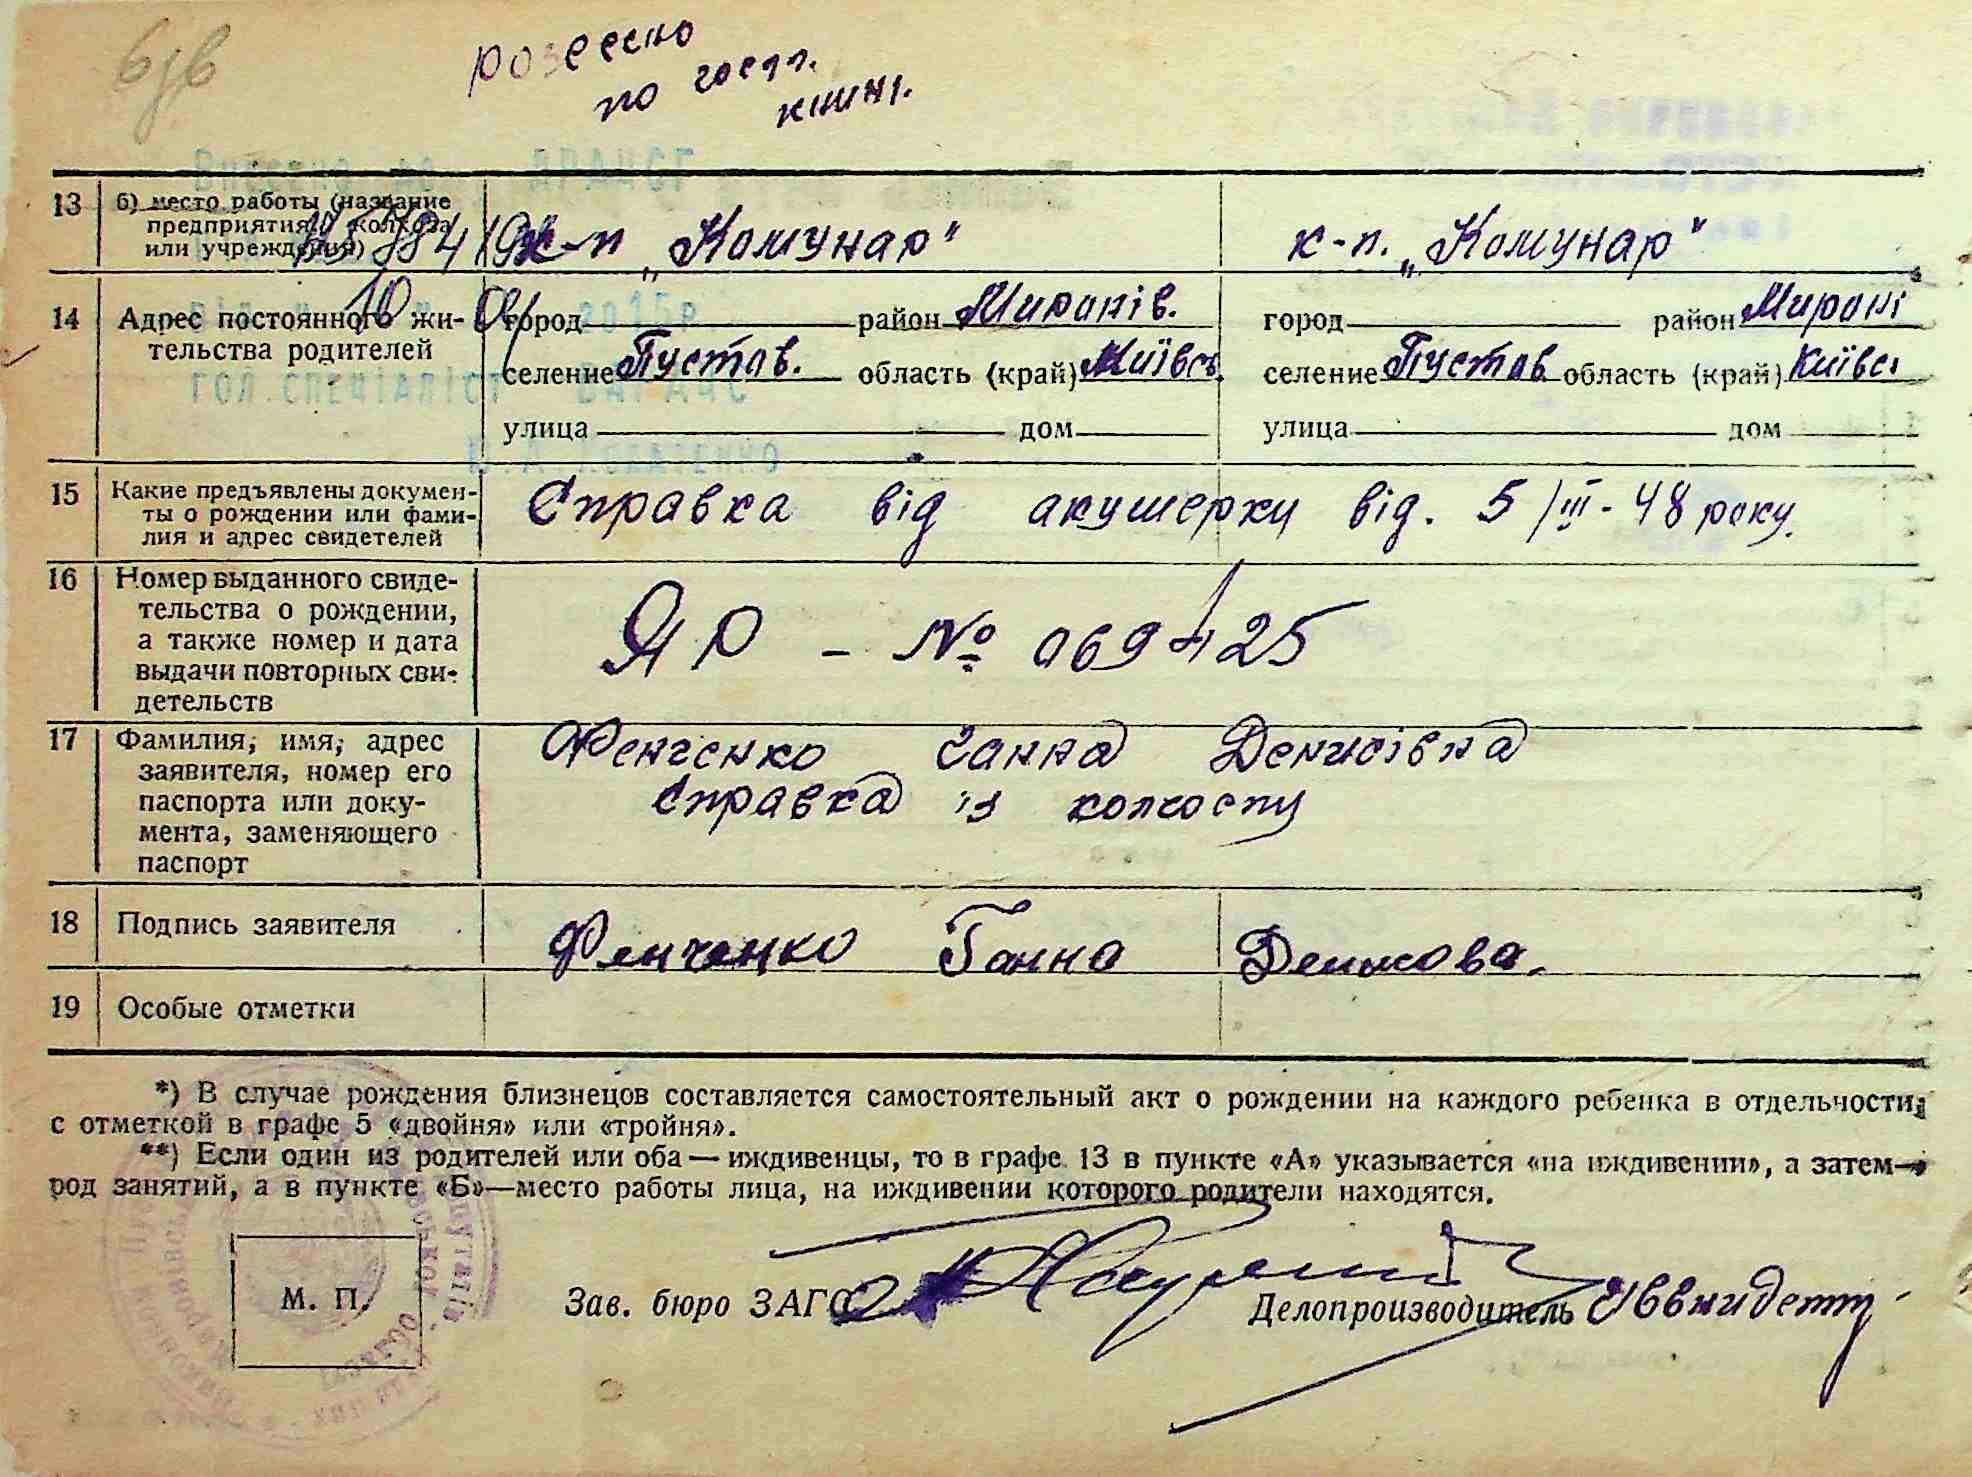 рознесено
по госп.
книні.
Внесено до ДРАЦСГ
13 б) место работы (название предприятия, колхоза или учреждения) к-п „Комунар" к-п. „Комунар"
14 Адрес постоянного жительства родителей
город район Миронів. город район Мироні
2015р
селение Пустов. область (край) Київсь селение Пустов область (край) Київсь
гол.спеціаліст
улица дом улица дом
15 Какие предъявлены документы о рождении или фамилия и адрес свидетелей Справка від акушерки від. 5/III-48 року.
16 Номер выданного свидетельства о рождении, а также номер и дата выдачи повторных свидетельств ЯР - № 069425
17 Фамилия, имя, адрес заявителя, номер его паспорта или документа, заменяющего паспорт Фенченко Ганна Денисівна
Справка із колгоспу
18 Подпись заявителя Фенченко Ганна Денисова.
19 Особые отметки
*) В случае рождения близнецов составляется самостоятельный акт о рождении на каждого ребенка в отдельности,
с отметкой в графе 5 «двойня» или «тройня».
**) Если один из родителей или оба — иждивенцы, то в графе 13 в пункте «А» указывается «на иждивении», а затем—
род занятий, а в пункте «Б»—место работы лица, на иждивении которого родители находятся.
М. П. Зав. бюро ЗАГС Делопроизводитель